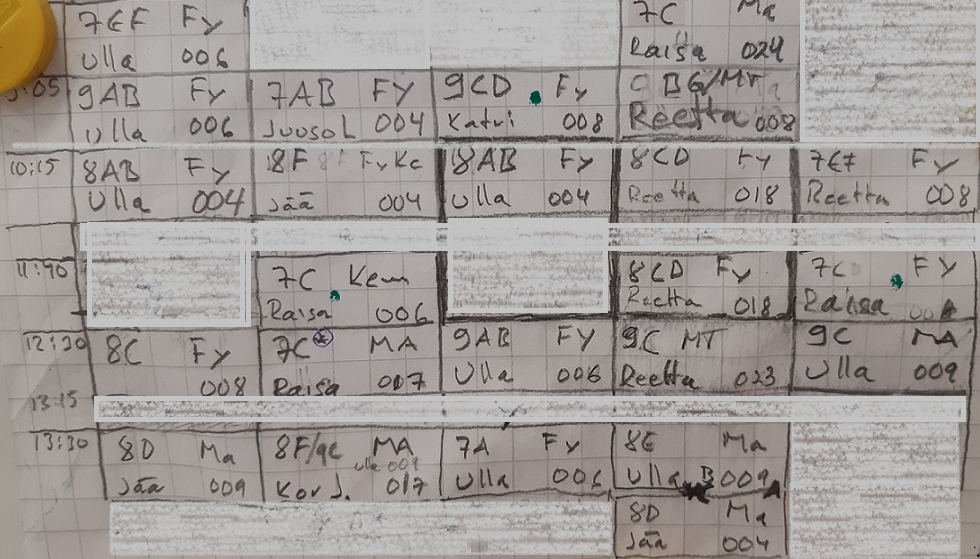 7EF Fy 7C Ma
Ulla 006 Raisa 024
9:05 9AB Fy 7AB FY 9CD Fy BG/MT
Ulla 006 JuusoL 004 Katri 008 Reetta 008
10:15 8AB Fy 8F FyKe 8AB Fy 8CD Fy 7EF Fy
Ulla 004 Jää 004 Ulla 004 Reetta 018 Reetta 008
11:40 7C Kem 8CD Fy 7C FY
Raisa 006 Reetta 018 Raisa
12:30 8C Fy 7C MA 9AB Fy 9C MT 9C MA
008 Raisa 007 Ulla 006 Reetta 023 Ulla 009
13:15
13:30 8D Ma 8F/9C MA 7A Fy 8E Ma
ulla 009
Jää 009 Kor J. 017 Ulla 006 Ulla B 009 A
8D Ma
Jää 004